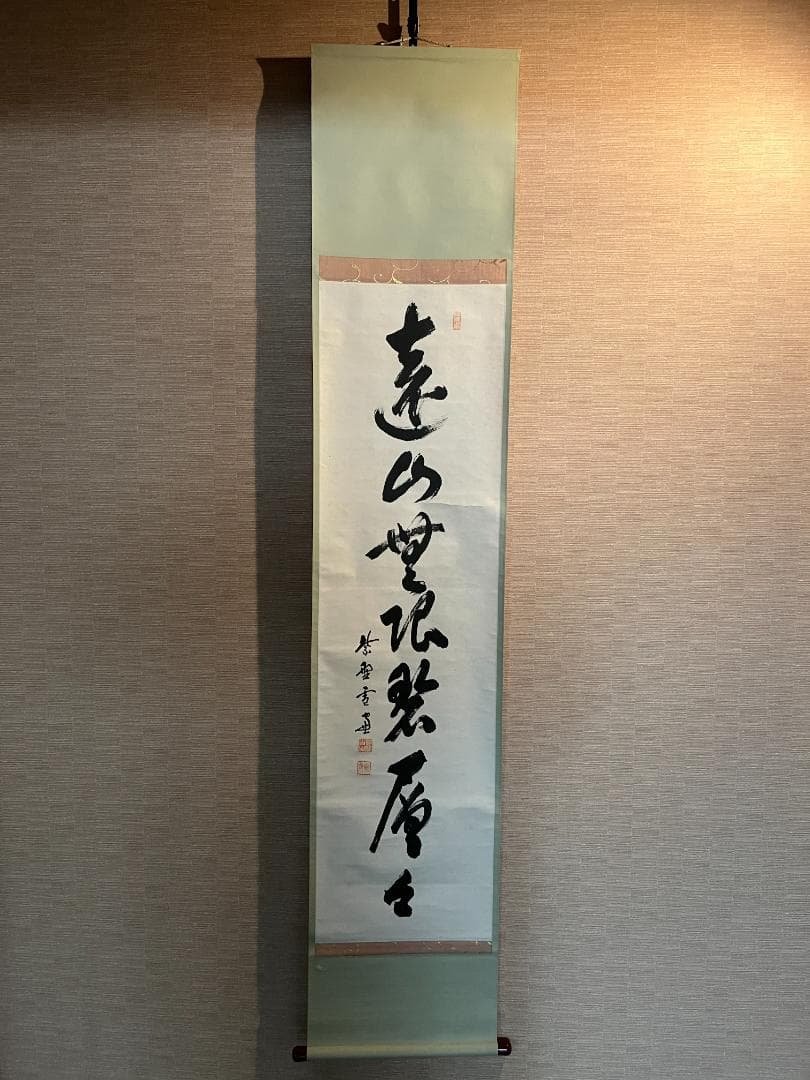 遠山無限碧層々
紫野雪